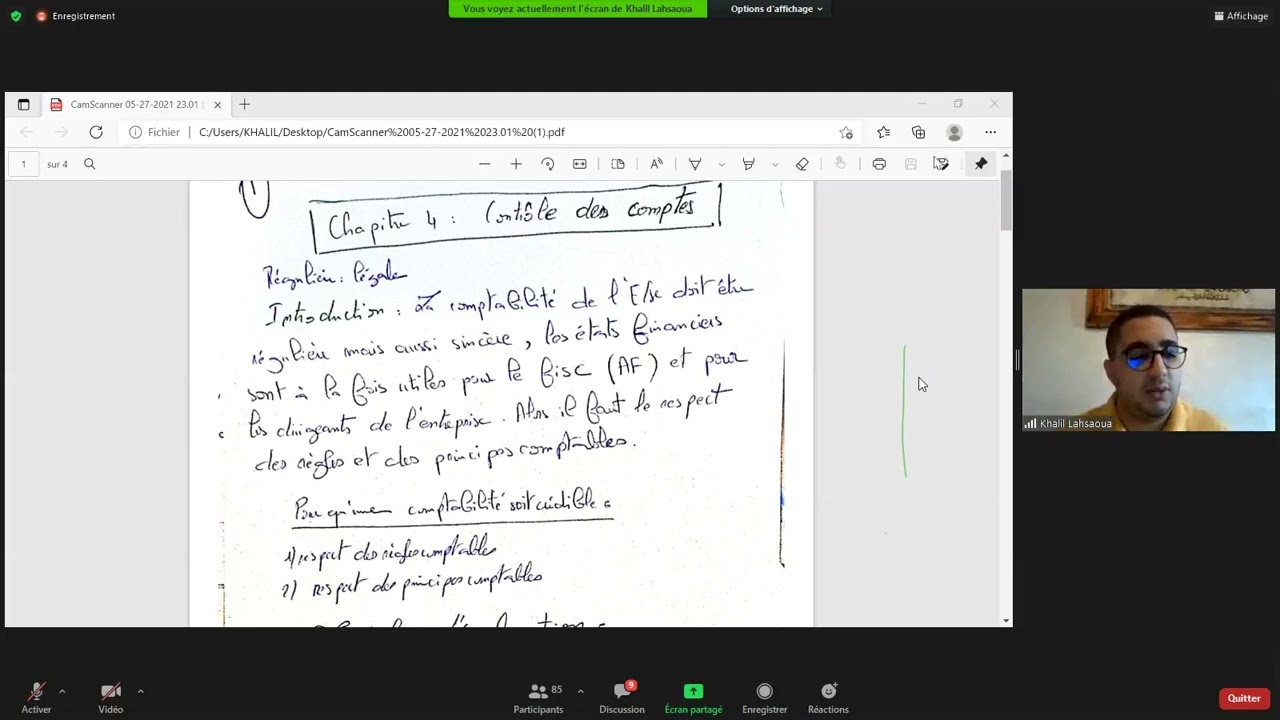 Enregistrement
Vous voyez actuellement l'écran de Khalil Lahsaoua
Options d'affichage
Affichage
CamScanner 05-27-2021 23.01 (
Fichier
C:/Users/KHALIL/Desktop/CamScanner%2005-27-2021%2023.01%20(1).pdf
1 sur 4
1
Chapitre 4 : Contrôle des comptes
Régulière : légale
Introduction : La comptabilité de l'E/se doit être
régulière mais aussi sincère, les états financiers
sont à la fois utiles pour le fisc (AF) et pour
les dirigeants de l'entreprise. Alors il faut le respect
des règles et des principes comptables.
Pour qu'une comptabilité soit crédible :
1) respect des règles comptables
2) respect des principes comptables
Khalil Lahsaoua
Activer
Vidéo
85
Participants
9
Discussion
Écran partagé
Enregistrer
Réactions
Quitter